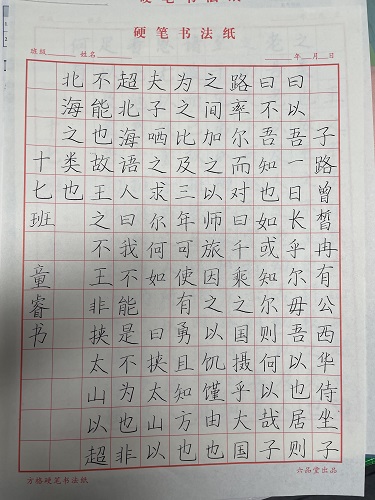 硬笔书法纸
硬笔书法纸
班级 姓名 年 月 日
子路曾皙冉有公西华侍坐子
曰以吾一日长乎尔毋吾以也居则
曰不吾知也如或知尔则何以哉子
路率尔而对曰千乘之国摄乎大国
之间加之以师旅因之以饥馑由也
为之比及三年可使有勇且知方也
夫子哂之求尔何如 曰挟太山以
超北海语人曰我不能是不为也非
不能也故王之不王非挟太山以超
北海之类也
十七班 童睿书
方格硬笔书法纸 六品堂出品